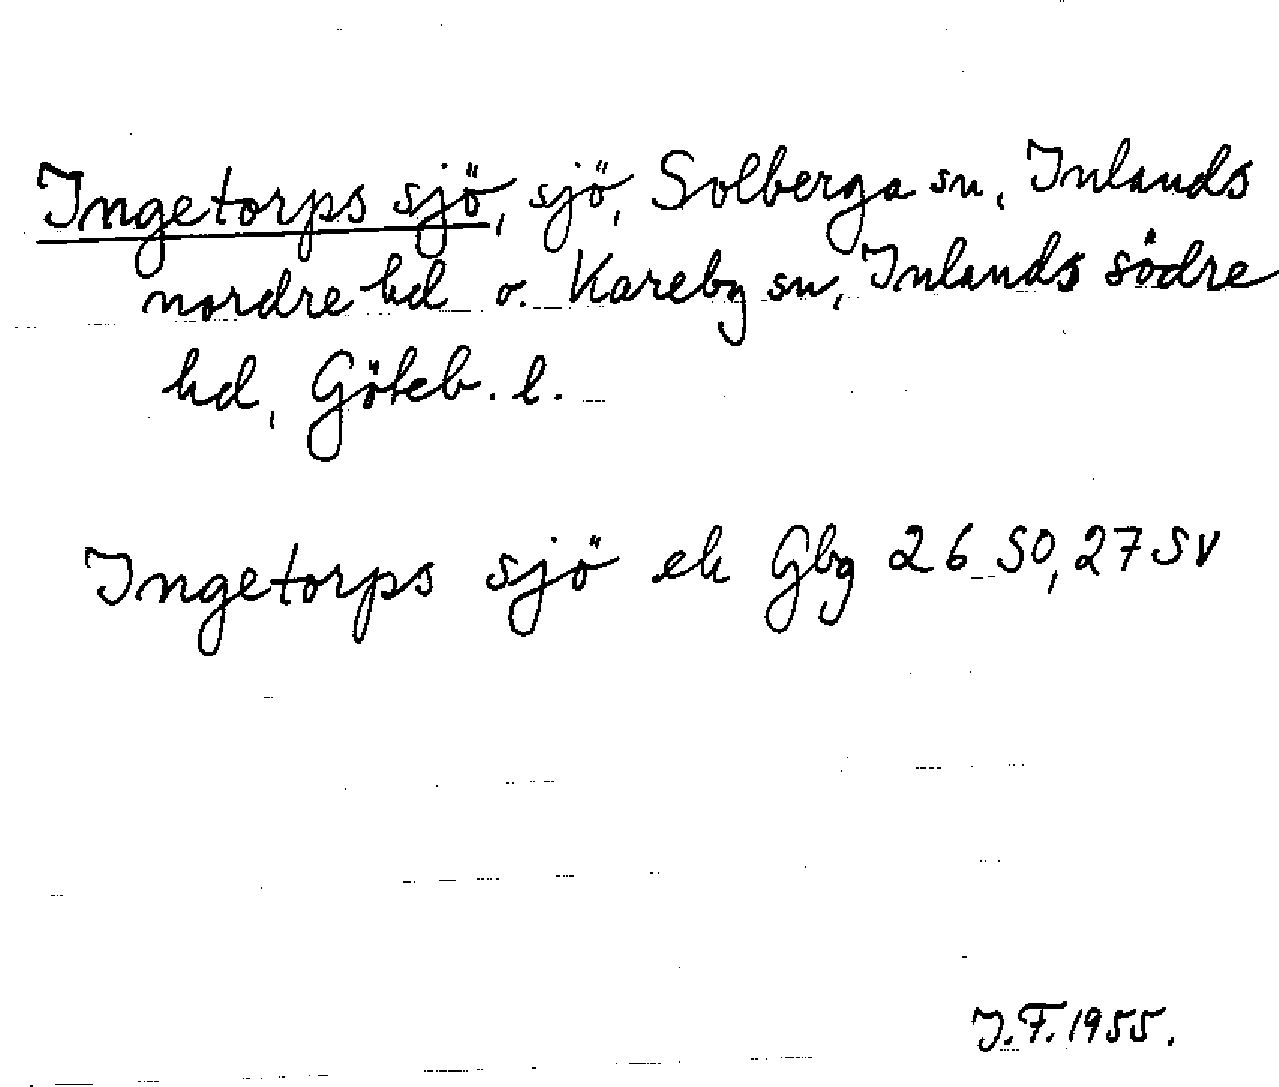 Ingetorps sjö, sjö, Solberga sn, Inlands
nordre hd o. Kareby sn, Inlands södre
hd, Göteb. l.
Ingetorps sjö ek Gbg 26 SO, 27 SV
J.F. 1955.